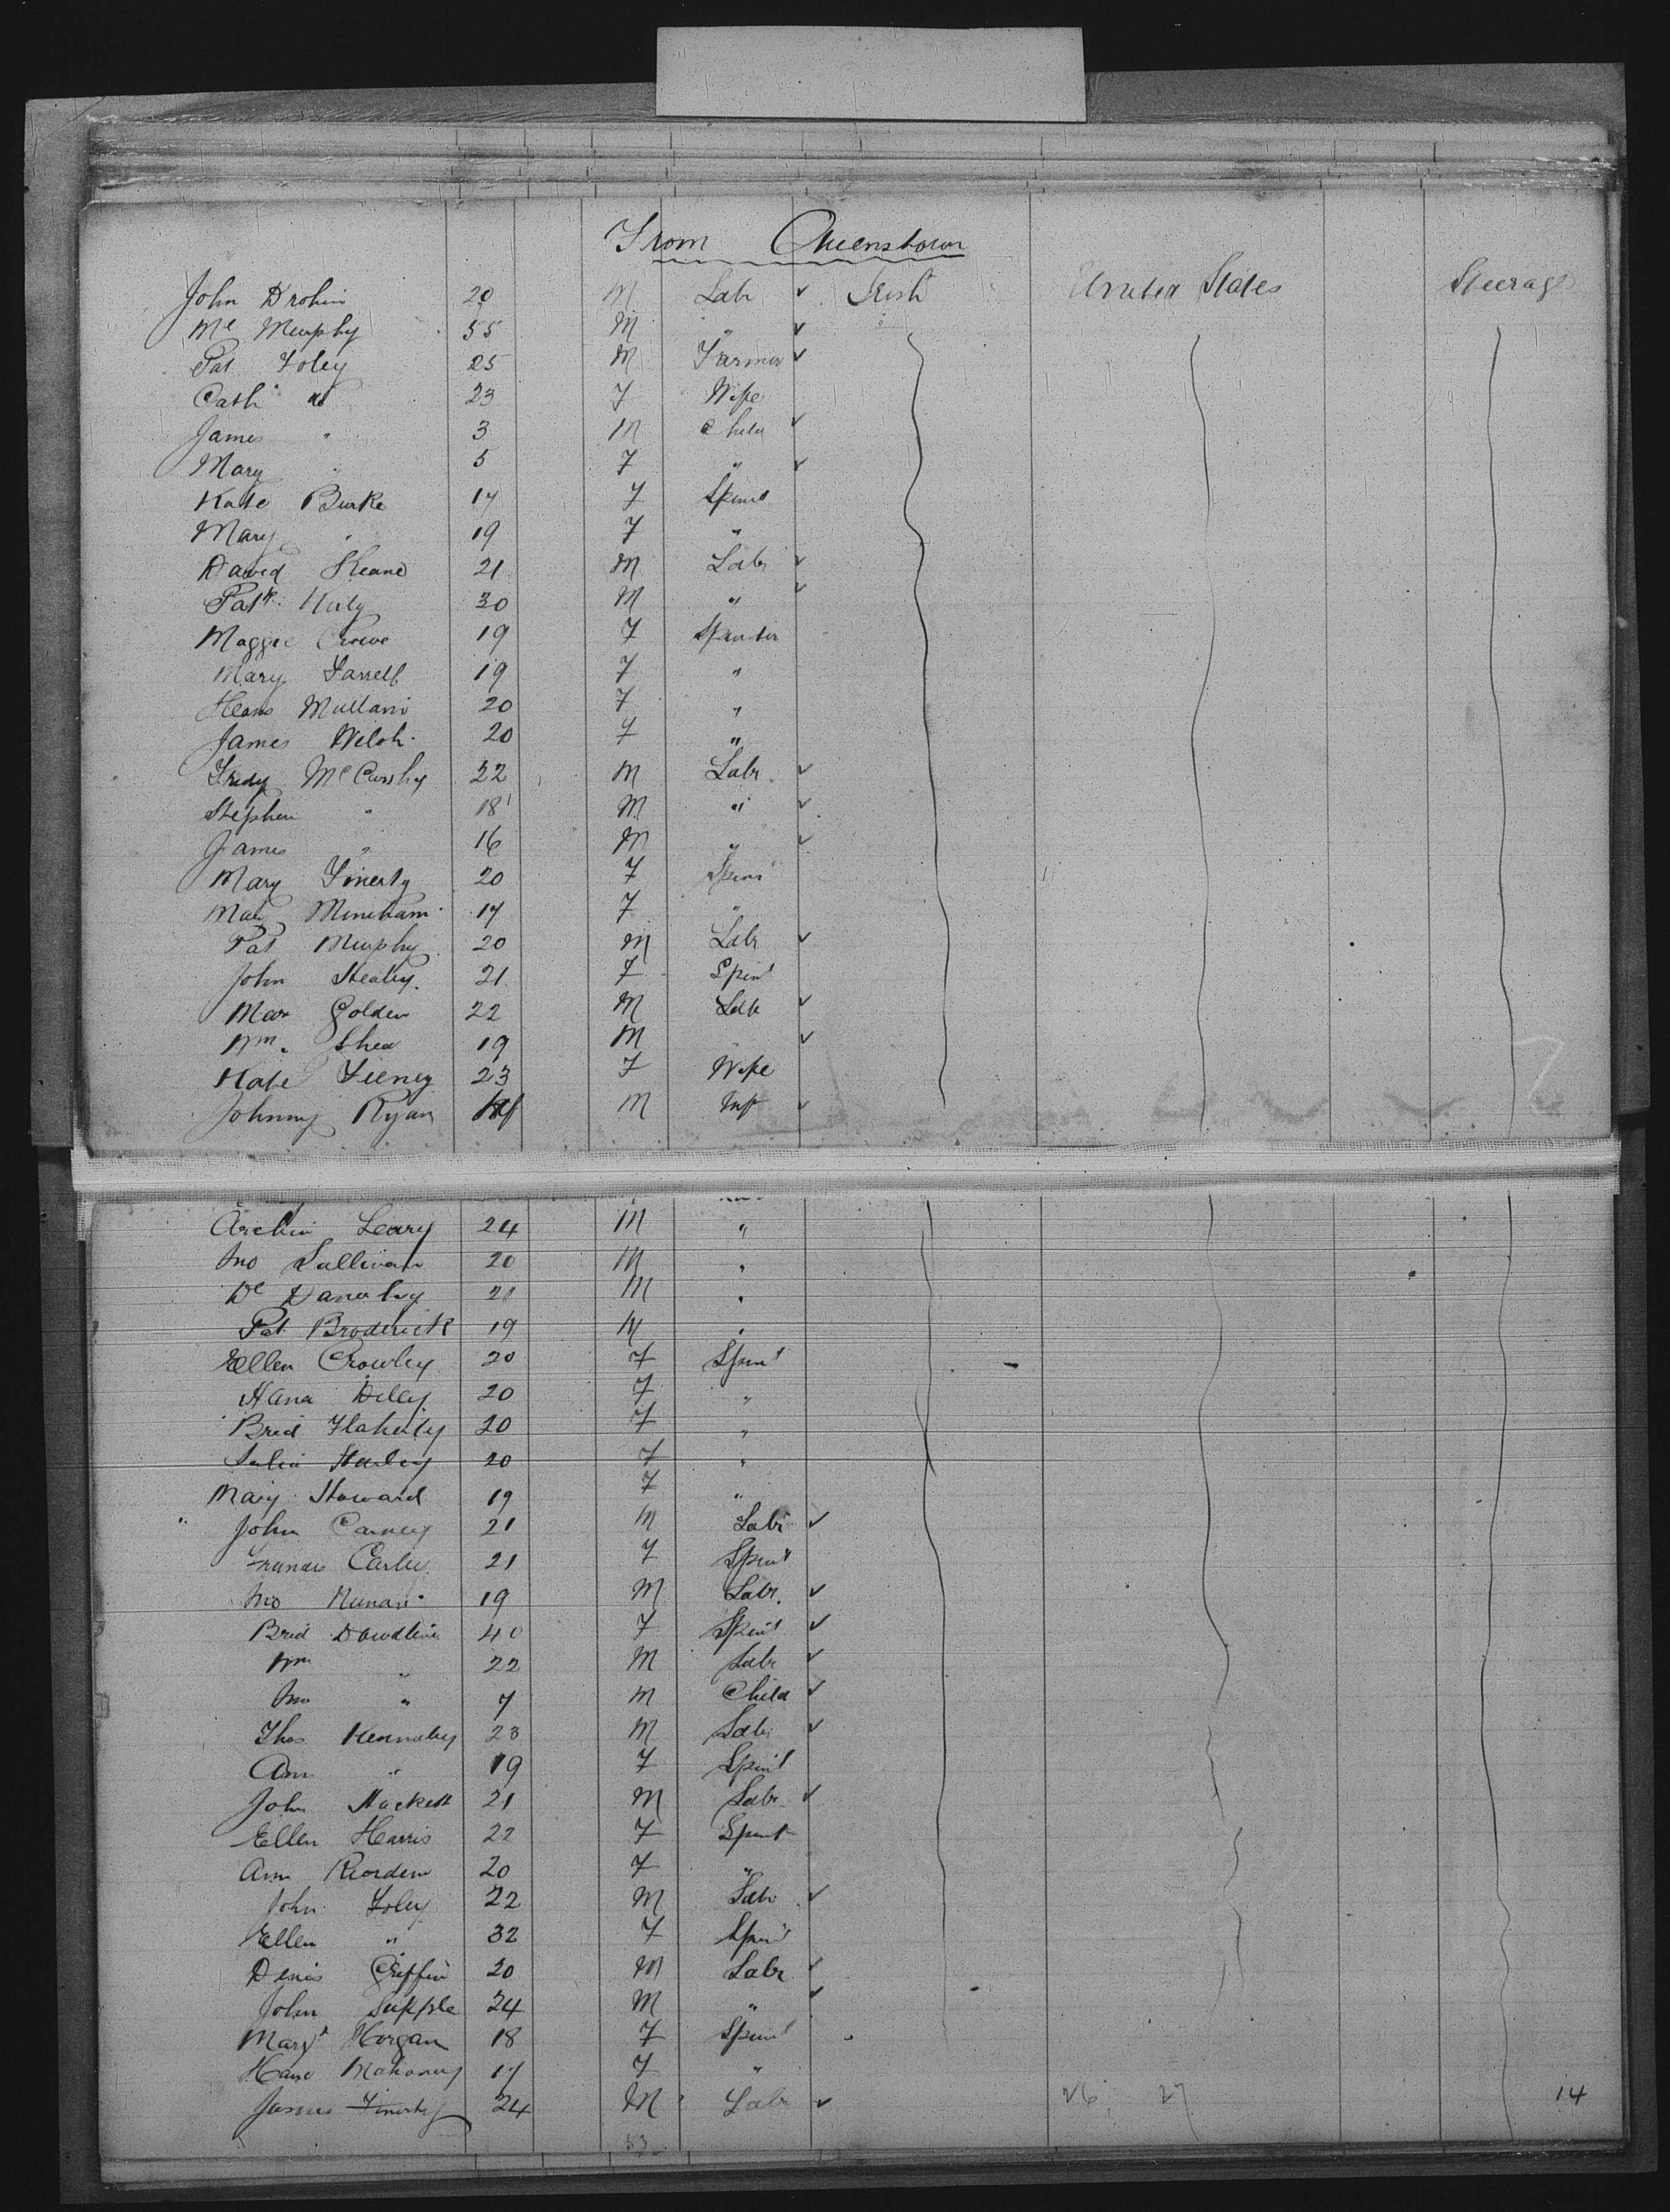 From Queenstown
John 20 M Labr ✓ Irish United States Steerage
Ml Murphy 55 M " ✓
Pat Foley 25 M Farmer ✓
Cath do 23 F Wife
James " 3 M Child ✓
Mary " 5 F " ✓
Kate Burke 17 F Spinst
Mary " 19 F "
David Keane 21 M Labr ✓
Patk. 30 M " ✓
Maggie Crowe 19 F Spinster
Mary Farrell 19 F "
20 F "
James Welsh 20 F "
22 M Labr ✓
Stephen " 18 M " ✓
James " 16 M " ✓
Mary Finerty 20 F Spins
17 F "
Pat Murphy 20 M Labr ✓
John Healey. 21 F Spins
Golden 22 M Labr ✓
Wm. Shea 19 M ✓
Kate Feeney 23 F Wife
Johnny Ryan M Inft ✓
Leary 24 M "
Jno Sullivan 20 M "
20 M "
Pat Broderick 19 M "
Ellen Crowley 20 F Spinst
Hana 20 F "
Brid Flaherty 20 F "
Julia Hurley 20 F "
Mary Howard 19 F "
John Carney 21 M Labr ✓
Frances Carley 21 F Spinst
Jno Nunan 19 M Labr. ✓
Brid Dowdling 40 F Spinst ✓
Wm " 22 M Labr ✓
Jno " 7 M Child ✓
Thos Kenneley 23 M Labr ✓
Ann " 19 F Spinst
John Hackett 21 M Labr ✓
Ellen Harris 22 F Spinst
Ann Riorden 20 F "
John Foley 22 M Labr ✓
Ellen " 32 F Spins
Denis Griffin 20 M Labr ✓
John Supple 24 M " ✓
Margt Horgan 18 F Spinst
Mahoney 17 F "
James Finerty 24 M Labr ✓ 26 27 14
53